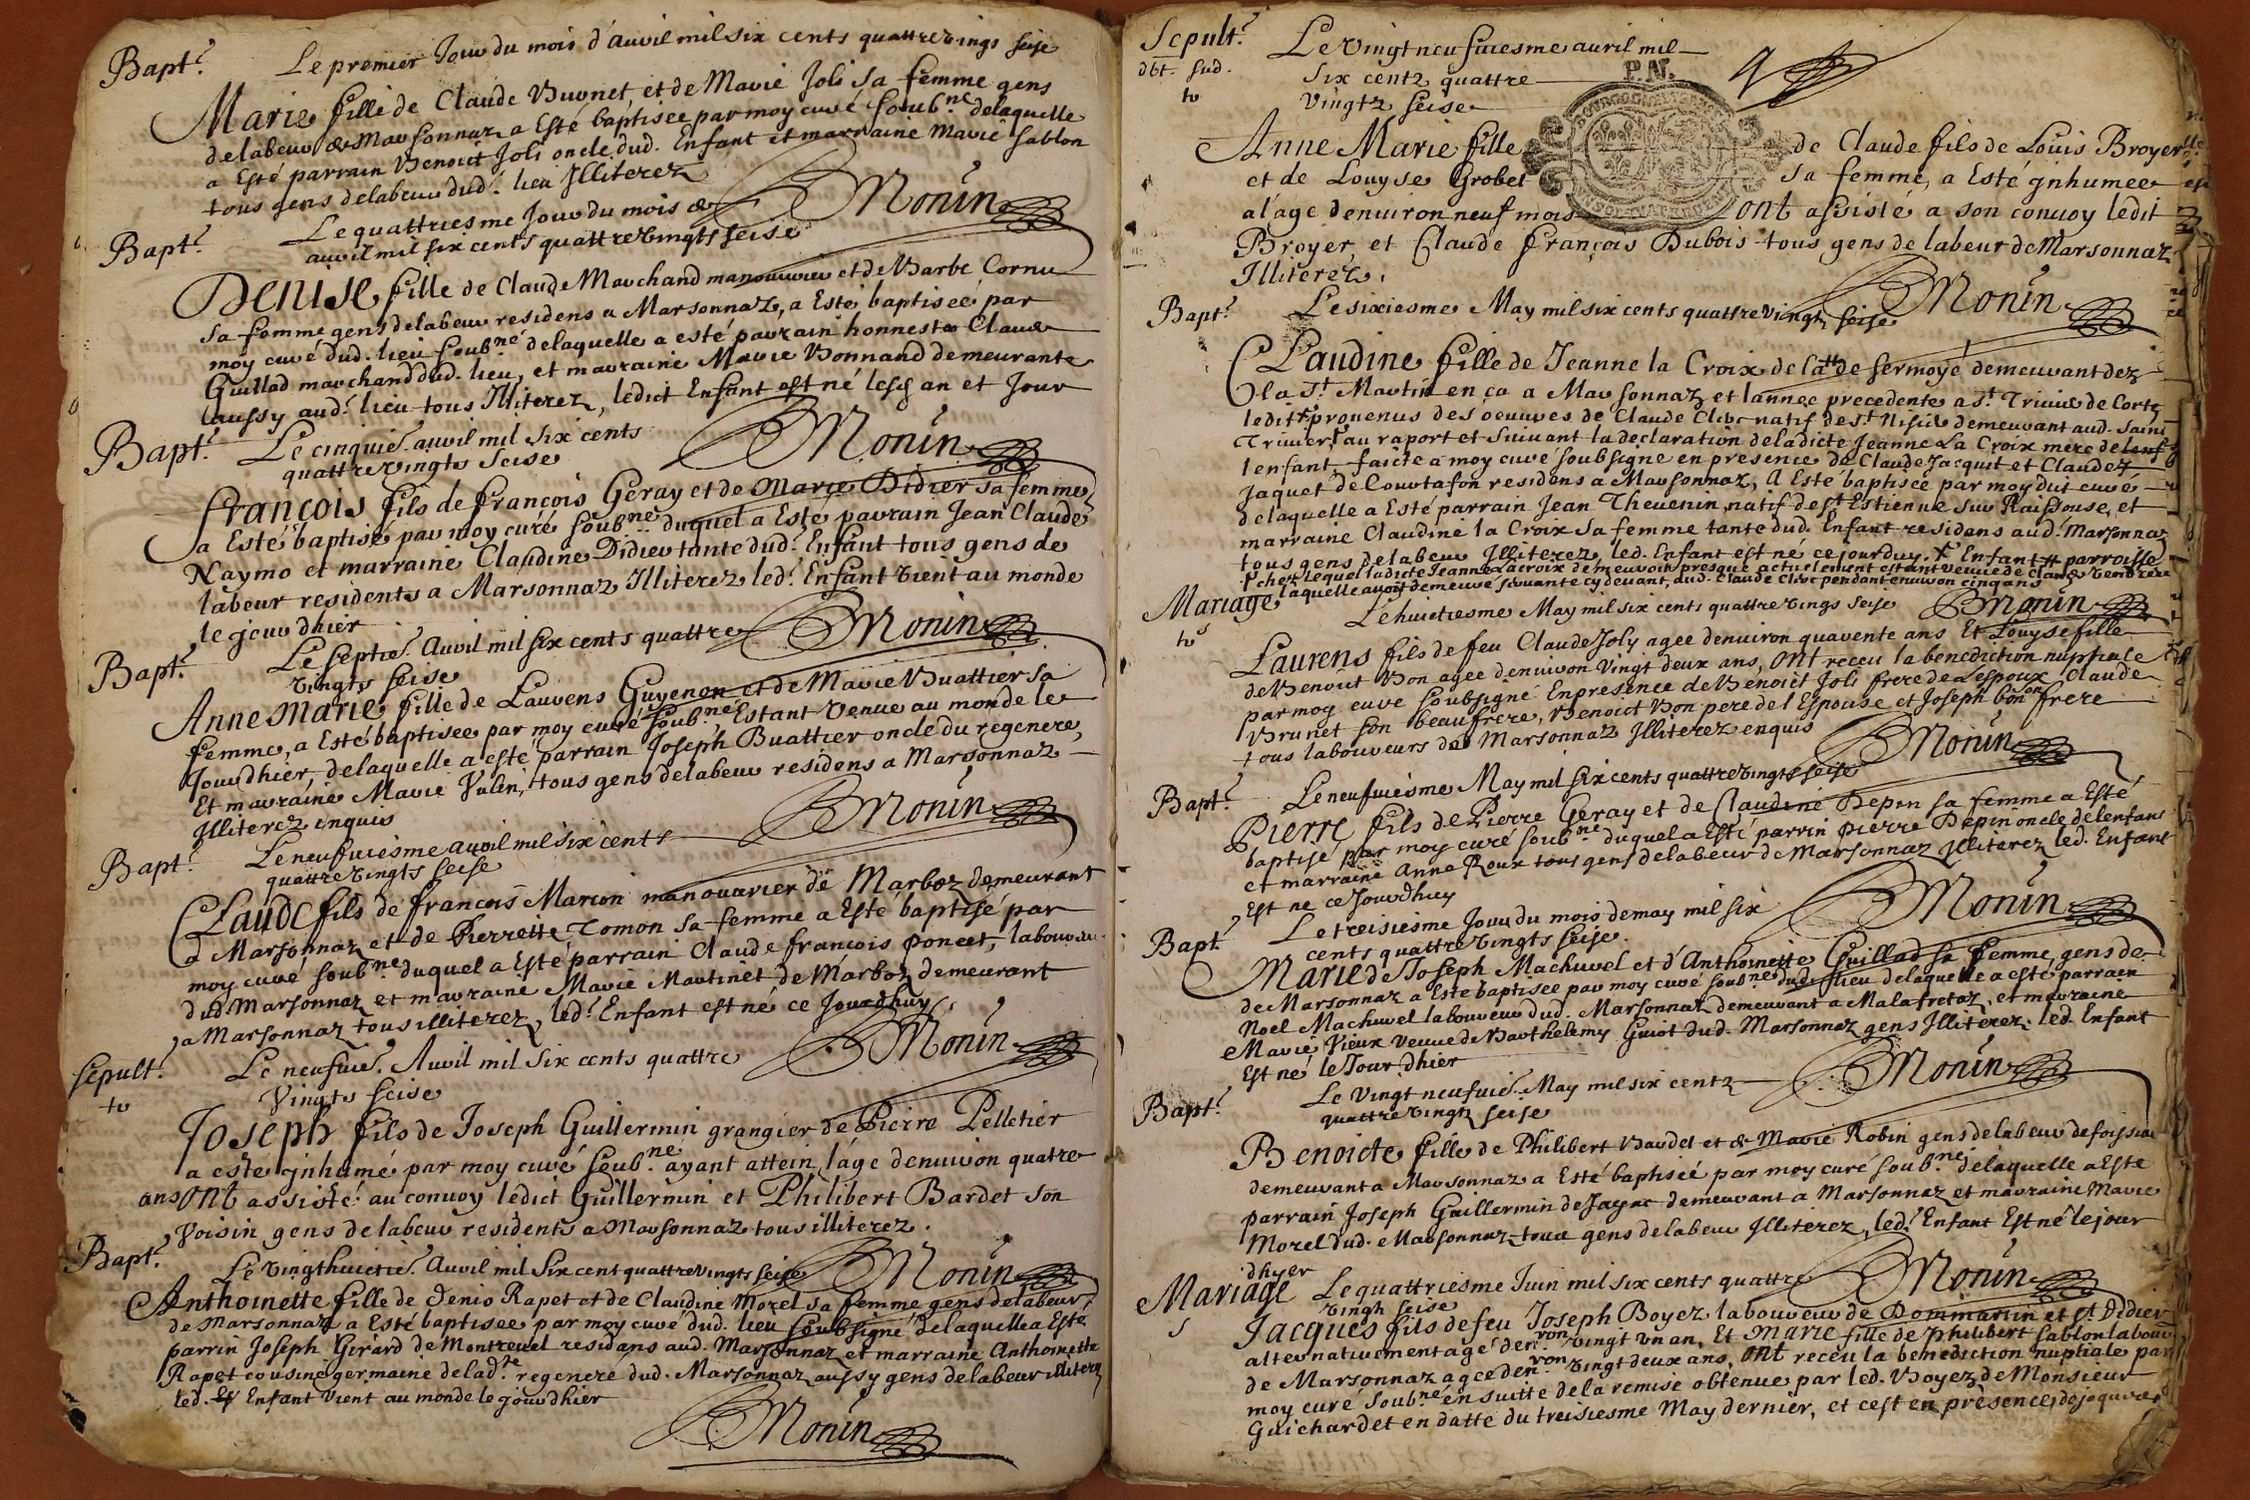 Bapt.e
Le premier Jour du mois d'Auvil mil six cents quattrevings seise
Marie fille de Claude Brunet, et de Marie Joli sa femme gens
delabeur de Marsonnaz a Esté baptisée par moy curé soub.né delaquelle
a Esté parrain Benoict Joli oncle dud. Enfant et marraine Marie Sablon
tous gens delabeur dud.t lieu Illiterez
BMonin
Bapt.e
Le quattriesme Jour du mois de
auvil mil six cents quattrevingts seise
Denise fille de Claude Marchand manouvrier et de Barbe Cornu
sa femme gens delabeur residens a Marsonnaz, a Esté baptiseé par
moy curé dud. lieu soub.né delaquelle a esté parrain honneste Claude
Guillad marchand dud. lieu, et marraine Marie Bonnand demeurante
aussy aud.t lieu tous Illiterez, ledict Enfant est né lesd an et Jour
BMonin
Bapt.e
Le cinquies. auvil mil six cents
quattrevingts seise
François fils de François Geray et de Marie Didier sa femme
a Esté baptisé par moy curé soub.né duquel a Esté parrain Jean Claude
Naymo et marraine Claudine Didier tante dud. Enfant tous gens de
labeur residents a Marsonnaz Illiterez led.t Enfant vient au monde
le jour dhier
BMonin
Bapt.e
Le septies. Auvil mil six cents quattre
vingts seise
Anne Marie fille de Laurens Guyenon et de Marie Buattier sa
femme, a Esté baptisee par moy curé soub.né Estant venue au monde le
Jour dhier, delaquelle a esté parrain Joseph Buattier oncle du regeneré,
Et marraine Marie Vulin, tous gens delabeur residens a Marsonnaz
Illiterez enquis
BMonin
Bapt.e
Le neufviesme auvil mil six cents
quattrevingts seise
Claude fils de François Marion manouvrier de Marboz demeurant
a Marsonnaz et de Pierrette Tomon sa femme a Esté baptisé par
moy curé soub.né duquel a Esté parrain Claude François Poncet, laboureur
dud Marsonnaz et marraine Marie Martinet de Marboz demeurant
a Marsonnaz tous illiterez, led.t Enfant est né ce Jourdhuy
BMonin
Sepult.e
Le neufvies. Auvil mil six cents quattre
Vingts seise
Joseph fils de Joseph Guillermin grangier de Pierre Pelletier
a esté jnhumé par moy curé soub.né ayant attein lage denviron quatre
ans ont assisté au convoy ledict Guillermin et Philibert Bardet son
Voisin gens delabeur residents a Marsonnaz tous illiterez.
BMonin
Bapt.e
Le vingthuicties. Auvil mil six cent quattrevingts seise
Anthoinette fille de Denis Rapet et de Claudine Morel sa femme gens delabeur
de Marsonnaz a Esté baptisee par moy curé dud. lieu soubsigné delaquelle a Esté
parrin Joseph Girard de Montrevel residans aud. Marsonnaz et marraine Anthoinette
Rapet cousine germaine delad.te regeneré dud. Marsonnaz aussy gens delabeur illiterez
led. Enfant vient au monde le jour dhier
BMonin
Sepult.e
Le vingtneufviesme auril mil
six centz quattre
vingtz seise
P.N.
Anne Marie fille de Claude fils de Louis Broyer
et de Louyse Grobet sa femme, a Esté jnhumee
a l'age denuiron neuf mois ont assisté a son conuoy ledit
Broyer et Claude François Dubois tous gens de labeur de Marsonnaz
Illiterez.
BMonin
Bapt.e
Le sixiesme May mil six cents quattrevingtz seise
Claudine fille de Jeanne la Croix de la tt de Sermoyé demeurant dez
la St. Martin en ça a Marsonnaz et lannee precedente a St. Trivier de Corte
ledit provenus des oeuvres de Claude Clerc natif de St. Nisié demeurant aud. Saint
Trivier au raport et suivant la declaration deladicte Jeanne La Croix mere de
lenfant faicte a moy curé soubsigné en presence de Claude Jacquet et Claude
Jaquet de Courtafon residens a Marsonnaz, a Esté baptisée par moy dit curé
delaquelle a Esté parrain Jean Thevenin natif de St Estienne sur Raissouse, et
marraine Claudine la Croix sa femme tante dud. Enfant residens aud. Marsonnaz
tous gens delabeur Illiterez, led. Enfant est né cejourduy. Enfant parroisse
chez lequel ladicte Jeanne Lacroix demeuroit presque actuelement estant veuve de Claude
laquelle avoit demeuré servante cydevant, dud. Claude Clerc pendant environ cinq ans
BMonin
Mariage
Le huictiesme May mil six cents quattrevings seise
Laurens fils de feu Claude Joly agee denuiron quarente ans Et Louyse fille
de Benoict Bon agee denuiron Vingt deux ans, ont receu la benediction nuptiale
par moy curé soubsigné En presence de Benoict Joli frere de lespoux, Claude
Brunet son beau frere, Benoict Bon pere del Espouse et Joseph bon son frere
tous laboureurs de Marsonnaz Illiterez enquis
BMonin
Bapt.e
Le neufuiesme May mil six cents quattrevingts seise
Pierre fils de Pierre Geray et de Claudine Depin sa femme a Esté
baptisé par moy curé soub.né duquel a Esté parrin Pierre Depin oncle delenfant
et marraine Anne Roux tous gens delabeur de Marsonnaz Illiterez led. Enfant
Est ne ce Jourdhuy
BMonin
Bapt
Le treisiesme Jour du mois de may mil six
cents quattrevingts seise.
Marie de Joseph Machurel et d'Anthoinette Guillad sa femme gens de
de Marsonnaz a Esté baptisee par moy curé soub.né dud. lieu delaquelle a esté parrain
Noel Machurel laboureur dud. Marsonnaz demeurant a Malafretaz, et marraine
Marie Vieux veuve de Barthelemy Guiot dud. Marsonnaz gens Illiterez. led. Enfant
Est né le Jour dhier
BMonin
Bapt.e
Le Vingt neufuie. May mil six centz
quattrevingtz seise
Benoicte fille de Philibert Baudet et de Marie Robin gens delabeur de foissia
demeurant a Marsonnaz a Esté baptiseé par moy curé soub.né delaquelle a Este
parrain Joseph Guillermin de Jayac demeurant a Marsonnaz et marraine Marie
Morel dud. Marsonnaz tous gens delabeur Illiterez, led.t Enfant Est né le jour
dhyer
BMonin
Mariage
Le quattriesme Juin mil six cents quattre
vingtz seise
Jacques fils de feu Joseph Boyez laboureur de Dommartin et St. Didier
alternativement agé den.viron vingt un an, Et Marie fille de Philibert Sablon labour
de Marsonnaz agee den.viron vingt deux ans, ont receu la benediction nuptiale par
moy curé soub.né en suitte dela remise obtenue par led. Boyez de Monsieur
Guichardet en datte du treisiesme May dernier, et cest en presence